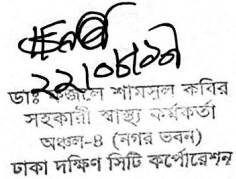 ২২/০৮/২২
ডাঃ ফজলে শামসুল কবির
সহকারী স্বাস্থ্য কর্মকর্তা
অঞ্চল-৪ (নগর ভবন)
ঢাকা দক্ষিণ সিটি কর্পোরেশন